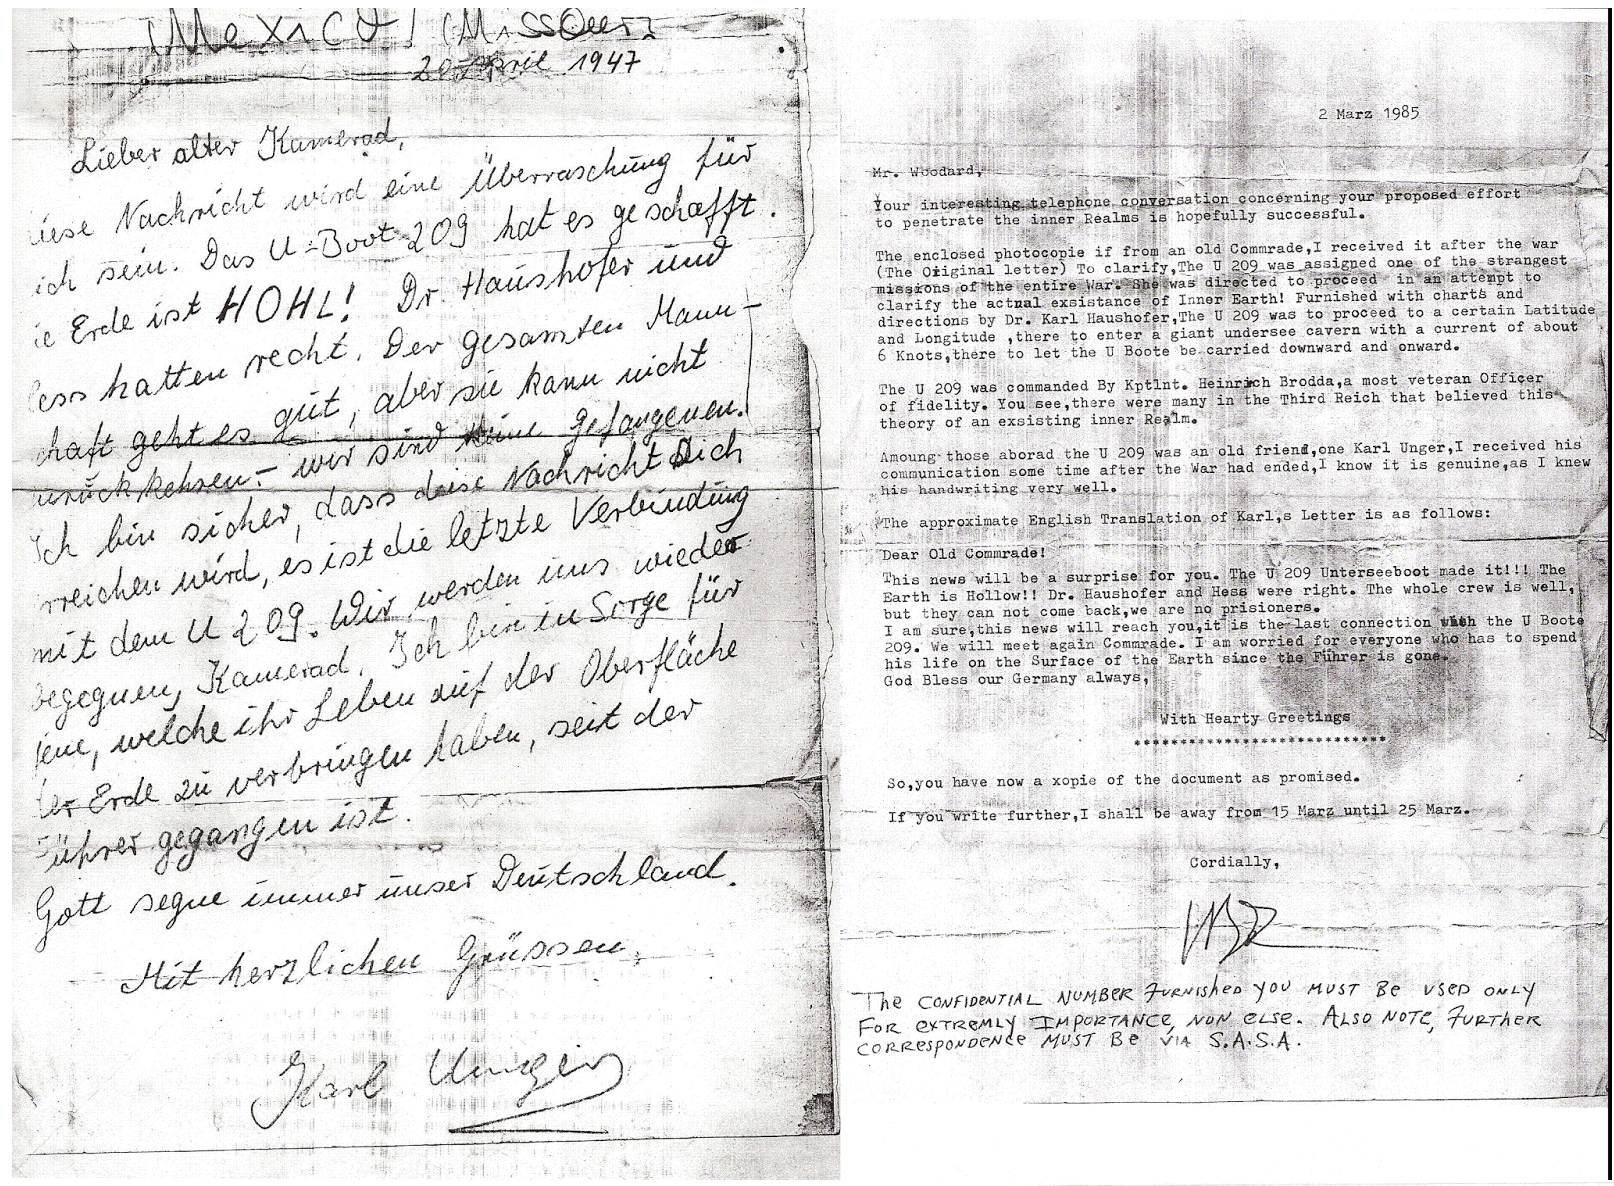 (Mexico) (Missouri)
20 April 1947
Lieber alter Kamerad,
iese Nachricht wird eine Überraschung für
ich sein. Das U-Boot 209 hat es geschafft.
ie Erde ist HOHL! Dr. Haushofer und
ess hatten recht. Der gesamten Mann-
chaft geht es gut, aber sie kann nicht
urückkehren - wir sind keine Gefangenen.
Ich bin sicher, dass diese Nachricht Dich
rreichen wird, es ist die letzte Verbindung
mit dem U 209. Wir werden uns wieder
begegnen, Kamerad. Ich bin in Sorge für
jene, welche ihr Leben auf der Oberfläche
der Erde zu verbringen haben, seit der
Führer gegangen ist.
Gott segne immer unser Deutschland.
Mit herzlichen Grüssen,
Karl Unger
2 Marz 1985
Mr. Woodard,
Your interesting telephone conversation concerning your proposed effort
to penetrate the inner Realms is hopefully successful.
The enclosed photocopie if from an old Commrade,I received it after the war
(The Original letter) To clarify,The U 209 was assigned one of the strangest
missions of the entire War. She was directed to proceed in an attempt to
clarify the actual exsistance of Inner Earth! Furnished with charts and
directions by Dr. Karl Haushofer,The U 209 was to proceed to a certain Latitude
and Longitude ,there to enter a giant undersee cavern with a current of about
6 Knots,there to let the U Boote be carried downward and onward.
The U 209 was commanded By Kptlnt. Heinrich Brodda,a most veteran Officer
of fidelity. You see,there were many in the Third Reich that believed this
theory of an exsisting inner Realm.
Amoung those aborad the U 209 was an old friend,one Karl Unger,I received his
communication some time after the War had ended,I know it is genuine,as I knew
his handwriting very well.
The approximate English Translation of Karl,s Letter is as follows:
Dear Old Commrade!
This news will be a surprise for you. The U 209 Unterseeboot made it!!! The
Earth is Hollow!! Dr. Haushofer and Hess were right. The whole crew is well,
but they can not come back,we are no prisioners.
I am sure,this news will reach you,it is the last connection with the U Boote
209. We will meet again Commrade. I am worried for everyone who has to spend
his life on the Surface of the Earth since the Führer is gone.
God Bless our Germany always,
With Hearty Greetings
***************************
So,you have now a xopie of the document as promised.
If you write further,I shall be away from 15 Marz until 25 Marz.
Cordially,
The CONFIDENTIAL NUMBER FURNISHED YOU MUST BE USED ONLY
FOR EXTREMLY IMPORTANCE, NON ELSE. ALSO NOTE, FURTHER
CORRESPONDENCE MUST BE VIA S.A.S.A.